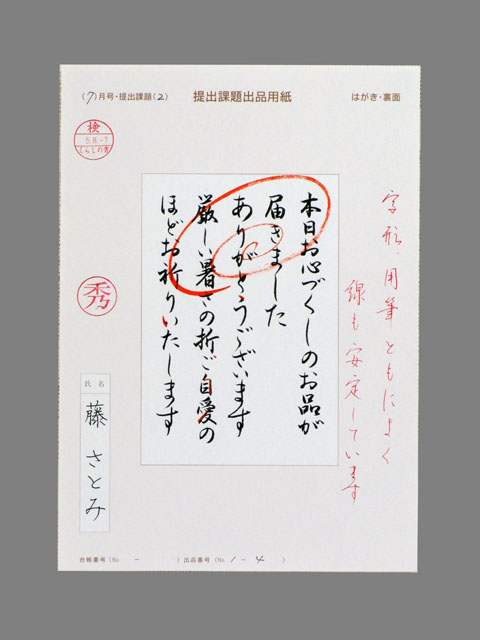 (7)月号・提出課題(2)
提出課題出品用紙
はがき・裏面
検
5.8.-7
くらしの書
本日お心づくしのお品が
届きました
ありがとうございます
厳しい暑さの折ご自愛の
ほどお祈りいたします
字形、用筆ともによく
線も安定しています
秀
氏名
藤 さとみ
台帳番号(No. - )出品番号(No. 1-4 )